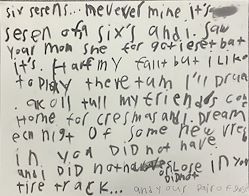 six serens... mevever mine it's
sesen ofn six's and i. saw
your mom she for got ieret but
it's. Harf my fallt but I LIKe
to Play there tam I'll Draw
. ak oll tull my friends com
Home for cresmas and i. Dream
ech nigt Of some new
in. you DiD not have
and i DiD not have Lose in you
tire track... and your pair of